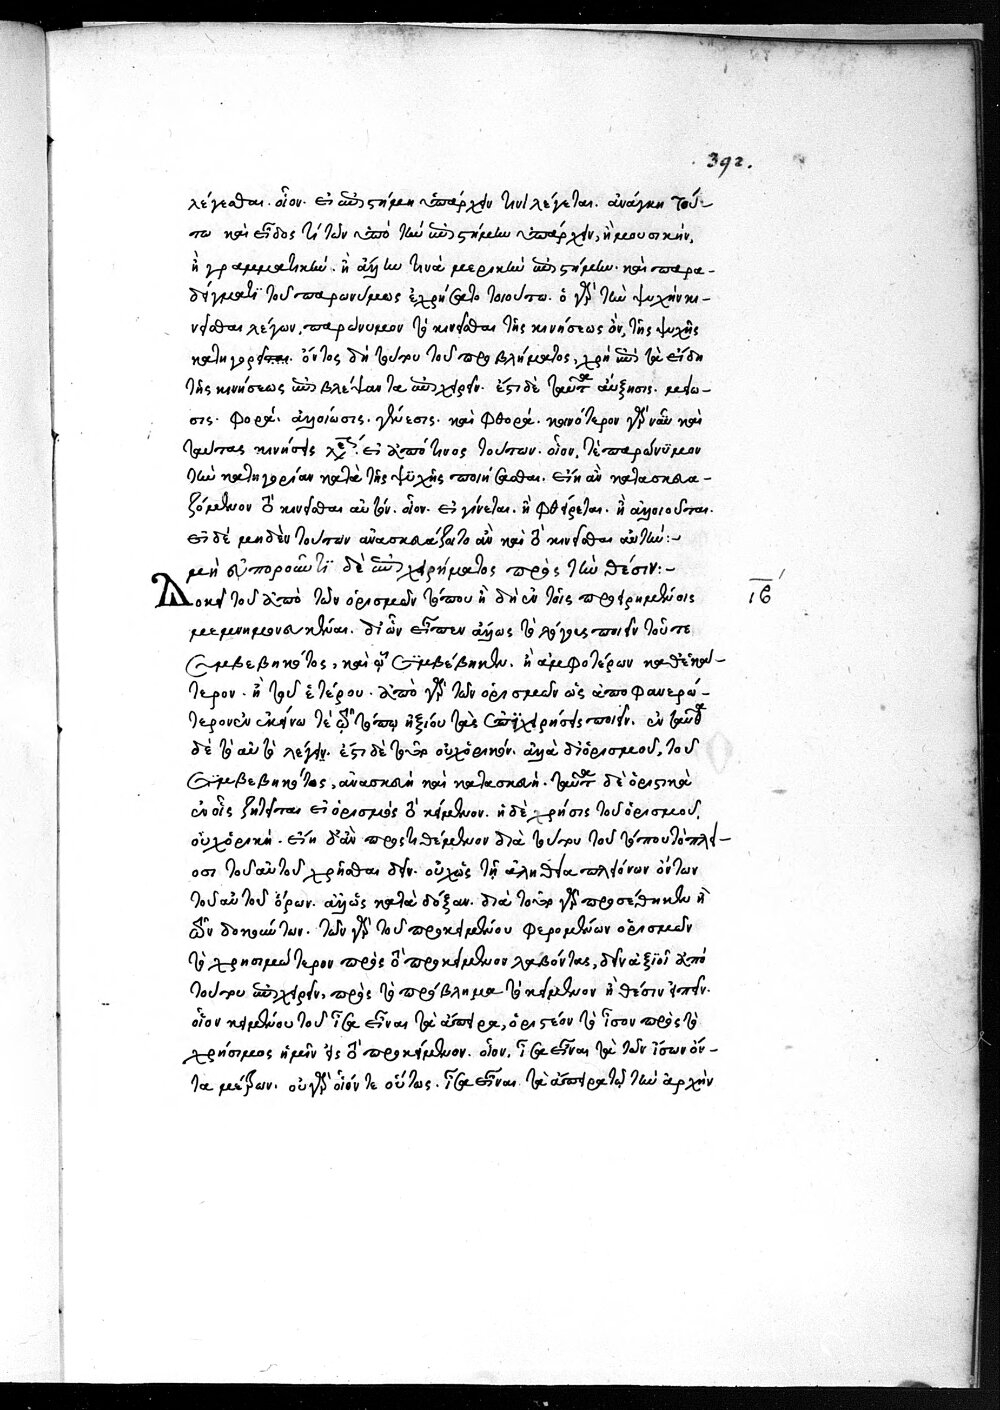 392.
λέγεσθαι. οἷον. εἰ ἐπιστήμη ὑπάρχειν τινὶ λέγεται. ἀνάγκη τού-
τω καὶ εἶδος τὶ τῶν ὑπὸ τὴν ἐπιστήμην ὑπάρχειν, ἢ μουσικὴν,
ἢ γραμματικήν. ἢ ἄλλην τινὰ μερικὴν ἐπιστήμην. καὶ παρα-
δείγματι τοῦ παρωνύμως ἐχρήσατο τοιούτω. ὁ γὰρ τὴν ψυχὴν κι-
νεῖσθαι λέγων, παρώνυμον τὸ κινεῖσθαι τῆς κινήσεως ὂν, τῆς ψυχῆς
κατηγορεῖ. ὄντος δὴ τούτου τοῦ προβλήματος, χρὴ ἐπὶ τὰ εἴδη
τῆς κινήσεως ἐπιβλέψαντα ἐπιχειρεῖν. ἔστι δὲ ταῦτα αὔξησις. μείω-
σις. φορά. ἀλλοίωσις. γένεσις. καὶ φθορά. κοινότερον γὰρ νῦν καὶ
ταύτας κινήσεις λέγει. εἰ ἀπό τινος τούτων. οἷον, τὲ παρώνυμον
τὴν κατηγορίαν κατὰ τῆς ψυχῆς ποιήσασθαι. εἴη ἂν κατασκευα-
ζόμενον τὸ κινεῖσθαι αὐτήν. οἷον. εἰ γίνεται. ἢ φθείρεται. ἢ ἀλλοιοῦται.
εἰ δὲ μηδὲν τούτων ἀνασκευάζοιτο ἂν καὶ τὸ κινεῖσθαι αὐτήν:-
μὴ εὐποροῦντι δὲ ἐπιχειρήματος πρὸς τὴν θέσιν:-
Δοκεῖ τοῦ ἀπὸ τῶν ὁρισμῶν τόπου ἤδη ἐν τοῖς προειρημένοις
ιβ´
μεμνημονευκέναι. δι' ὧν εἶπεν ἄλλως τὸ λόγους ποιεῖν τοῦ τε
συμβεβηκότος, καὶ ᾧ συμβέβηκεν. ἢ ἀμφοτέρων καθ' ἑκά-
τερον. ἢ τοῦ ἑτέρου. ἀπὸ γὰρ τῶν ὁρισμῶν ὡς ἀποφανερώ-
τερον ἐν ἐκείνω τε τῷ τόπω ἠξίου τὰς ἐπιχειρήσεις ποιεῖν. ἐν ταῦθα
δὲ τὸ αὐτὸ λέγειν. ἔστι δὲ τοῦτο οὐχ ὁρικόν. ἀλλὰ δι' ὁρισμοῦ, τοῦ
συμβεβηκότος, ἀνασκευὴ καὶ κατασκευή. ταῦτα δὲ ὁριστικὰ
ἐν οἷς ζητεῖται εἰ ὁρισμὸς τὸ κείμενον. ἡ δὲ χρῆσις τοῦ ὁρισμοῦ,
οὐχ ὁρική. εἴη δ' ἂν προστιθέμενον διὰ τούτου τοῦ τόπου τὸ πλεί-
οσι τοῦ αὐτοῦ χρῆσθαι δεῖν. οὐχ ὡς τῇ ἀληθεία πλειόνων ὄντων
τοῦ αὐτοῦ ὅρων. ἀλλ' ὡς κατὰ δόξαν. διὰ τοῦτο γὰρ προσέθηκεν ἢ
τῶν δοκούντων. τῶν γὰρ τοῦ προκειμένου φερομένων ὁρισμῶν
τὸ χρησιμώτερον πρὸς τὸ προκείμενον λαβόντας, δεῖν ἀξιοῖ ἀπὸ
τούτου ἐπιχειρεῖν, πρὸς τὸ πρόβλημα τὸ κείμενον ἢ θέσιν εἰπεῖν.
οἷον κειμένου τοῦ ἴσα εἶναι τὰ ἄπειρα, ὁριστέον τὸ ἴσον πρὸς τὸ
χρήσιμος ἡμῖν εἰς τὸ προκείμενον. οἷον, ἴσα εἶναι τὰ τῶν ἴσων ὄν-
τα μείζων. οὐ γὰρ οἷόν τε οὕτως. ἴσα εἶναι τὰ ἄπειρα τῷ τὴν ἀρχὴν